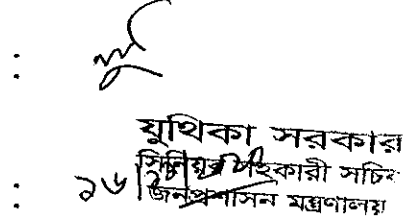 :
যুথিকা সরকার
সিনিয়র সহকারী সচিব
: ১৬|
জনপ্রশাসন মন্ত্রণালয়